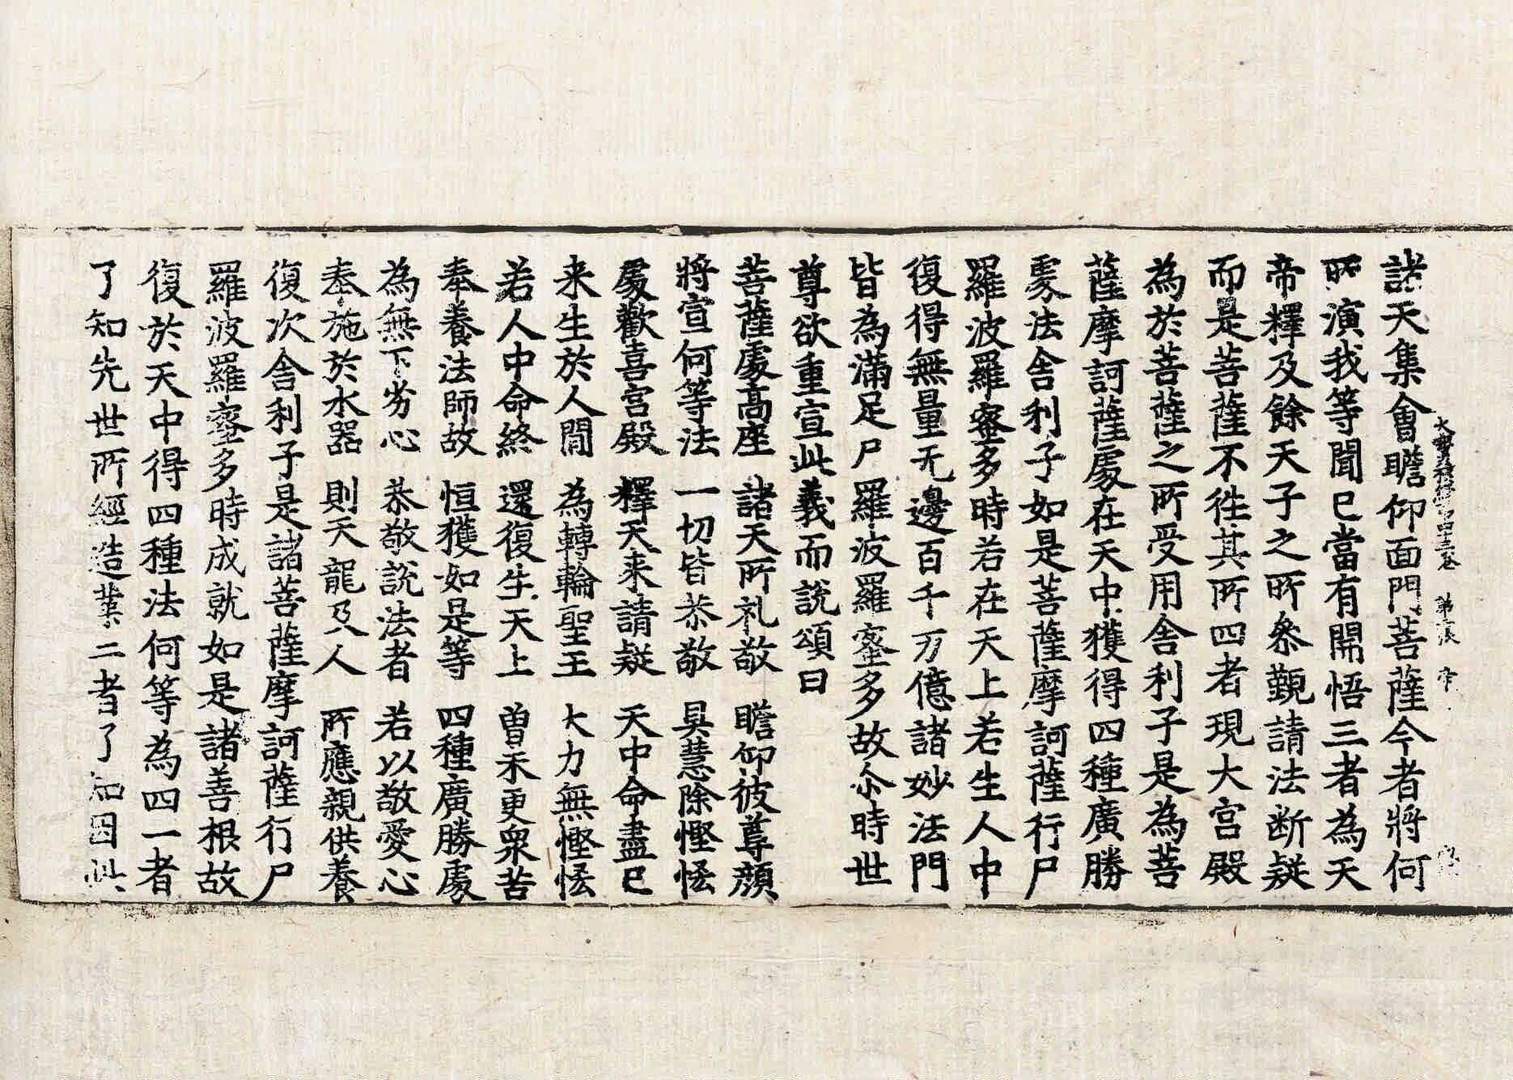 大寶積經第四十三卷 第二張 帝
諸天集會瞻仰面門菩薩今者將何
所演我等聞已當有開悟三者為天
帝釋及餘天子之所叅覲請法断疑
而是菩薩不徃其所四者現大宫殿
為於菩薩之所受用舎利子是為菩
薩摩訶薩處在天中獲得四種廣勝
處法舎利子如是菩薩摩訶薩行尸
羅波羅蜜多時若在天上若生人中
復得無量无邊百千万億諸妙法門
皆為滿足尸羅波羅蜜多故尒時世
尊欲重宣此義而說頌曰
菩薩處髙座 諸天所礼敬 瞻仰彼尊顔
將宣何等法 一切皆恭敬 具慧除慳恡
處歡喜宫殿 釋天来請疑 天中命盡已
来生於人間 為轉輪聖王 大力無慳恡
若人中命終 還復生天上 曽未更衆苦
奉養法師故 恒獲如是等 四種廣勝處
為無下劣心 恭敬說法者 若以敬愛心
奉施於水器 則天龍及人 所應親供養
復次舎利子是諸菩薩摩訶薩行尸
羅波羅蜜多時成就如是諸善根故
復於天中得四種法何等為四一者
了知先世所經造業二者了知因此